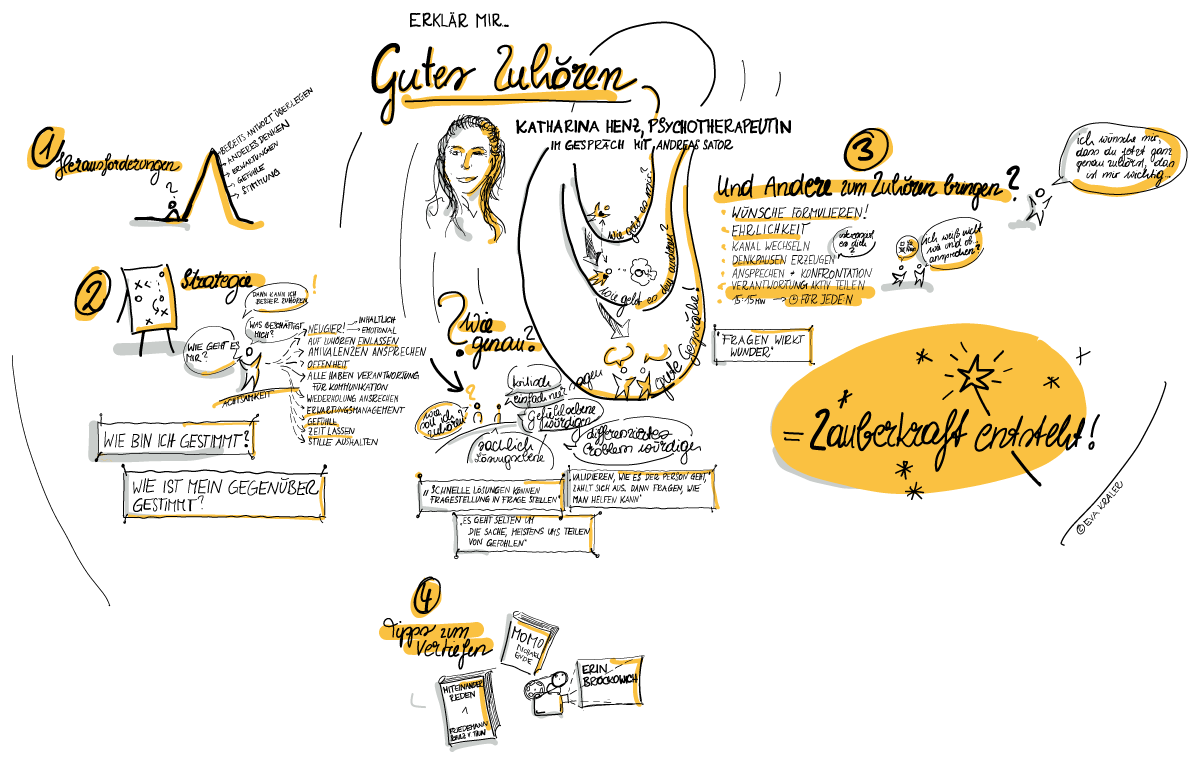 ERKLÄR MIR...
Gutes Zuhören
KATHARINA HENZ, PSYCHOTHERAPEUTIN
IM GESPRÄCH MIT ANDREAS SATOR
1
Herausforderungen
BEREITS ANTWORT ÜBERLEGEN
ANDERES DENKEN
ERWARTUNGEN
GEFÜHLE
STIMMUNG
?
2
Strategie
!
DANN KANN ICH
BESSER ZUHÖREN
WAS BESCHÄFTIGT
MICH?
WIE GEHT ES
MIR?
ACHTSAMKEIT
NEUGIER!
INHALTLICH
EMOTIONAL
AUF ZUHÖREN EINLASSEN
AMIVALENZEN ANSPRECHEN
OFFENHEIT
ALLE HABEN VERANTWORTUNG
FÜR KOMMUNIKATION
WIEDERHOLUNG ANSRECHEN
ERWARTUNGSMANAGEMENT
GEFÜHLE
ZEIT LASSEN
STILLE AUSHALTEN
WIE BIN ICH GESTIMMT?
WIE IST MEIN GEGENÜBER
GESTIMMT?
? Wie
genau?
wie geht es mir?
wie geht es dem anderen?
gute Gespräche!
? ?
?
wie
soll ich
zuhören?
kritisch
einfach nur
sagen
Gefühlsebene
würdigen
sachlich
Lösungsebene
differenziertes
Problem würdigen
"SCHNELLE LÖSUNGEN KÖNNEN
FRAGESTELLUNG IN FRAGE STELLEN"
"VALIDIEREN, WIE ES DER PERSON GEHT,
ZAHLT SICH AUS. DANN FRAGEN, WIE
MAN HELFEN KANN"
"ES GEHT SELTEN UM
DIE SACHE, MEISTENS UMS TEILEN
VON GEFÜHLEN"
3
Und Andere zum Zuhören bringen?
WÜNSCHE FORMULIEREN!
EHRLICHKEIT
KANAL WECHSELN
DENKPAUSEN ERZEUGEN
ANSPRECHEN + KONFRONTATION
VERANTWORTUNG AKTIV TEILEN
15:15 MIN → FÜR JEDEN
interessiert
es dich
?
Ich weiß nicht
wie und ob
ansprechen?
Ich wünsche mir,
dass du jetzt ganz
genau zuhörst, das
ist mir wichtig...
"FRAGEN WIRKT
WUNDER"
= Zauberkraft entsteht!
© EVA KRALER
4
Tipps zum
Vertiefen
MOMO
MICHAEL
ENDE
ERIN
BROCKOWICH
MITEINANDER
REDEN
1
FRIEDEMANN
SCHULZ V. THUN